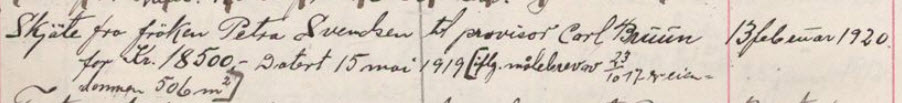 Skjøte fra frøken Petra Svendsen til provisor Carl Bruun 13 februar 1920
for Kr. 18500,- Datert 15 mai 1919 [iflg. målebrev av 23/10 17 er eien-
dommen 506 m²]